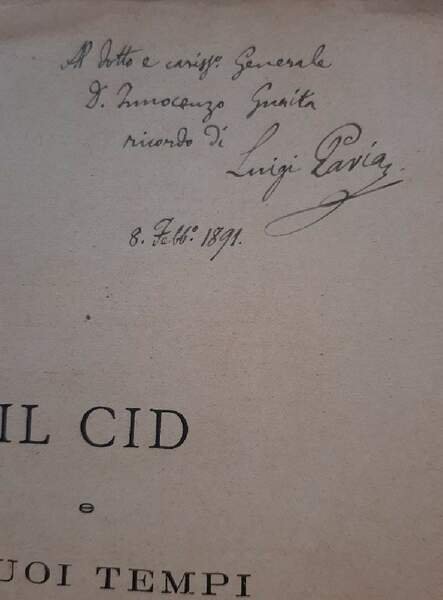 Al dotto e cariss.º Generale
D. Innocenzo Gurita
ricordo di
Luigi Pavia
8. Febb.º 1891.
IL CID
e
UOI TEMPI